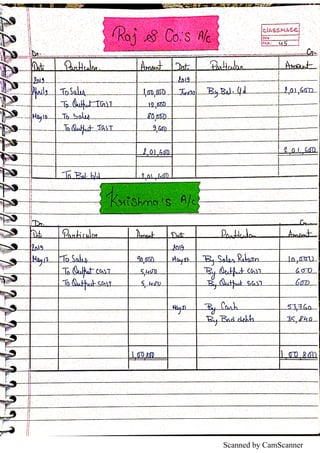 Raj & Co.'s A/c
classmate
Date
Page 45
Dr. Cr.
Date Particulars Amount Date Particulars Amount
2019 2019
April 9 To Sales 1,00,000 June 30 By Bal. c/d 2,01,600
To Output IGST 12,000
May 10 To Sales 80,000
To Output IGST 9,600
2,01,600 2,01,600
To Bal b/d 2,01,600
Krishna's A/c
Dr. Cr.
Date Particulars Amount Date Particulars Amount
2019 2019
May 12 To Sales 90,000 May By Sales Return 10,000
To Output CGST 5,400 By Output CGST 600
To Output SGST 5,400 By Output SGST 600
By Cash 53,760
By Bad debts 35,840
1,00,800 1,00,800
Scanned by CamScanner